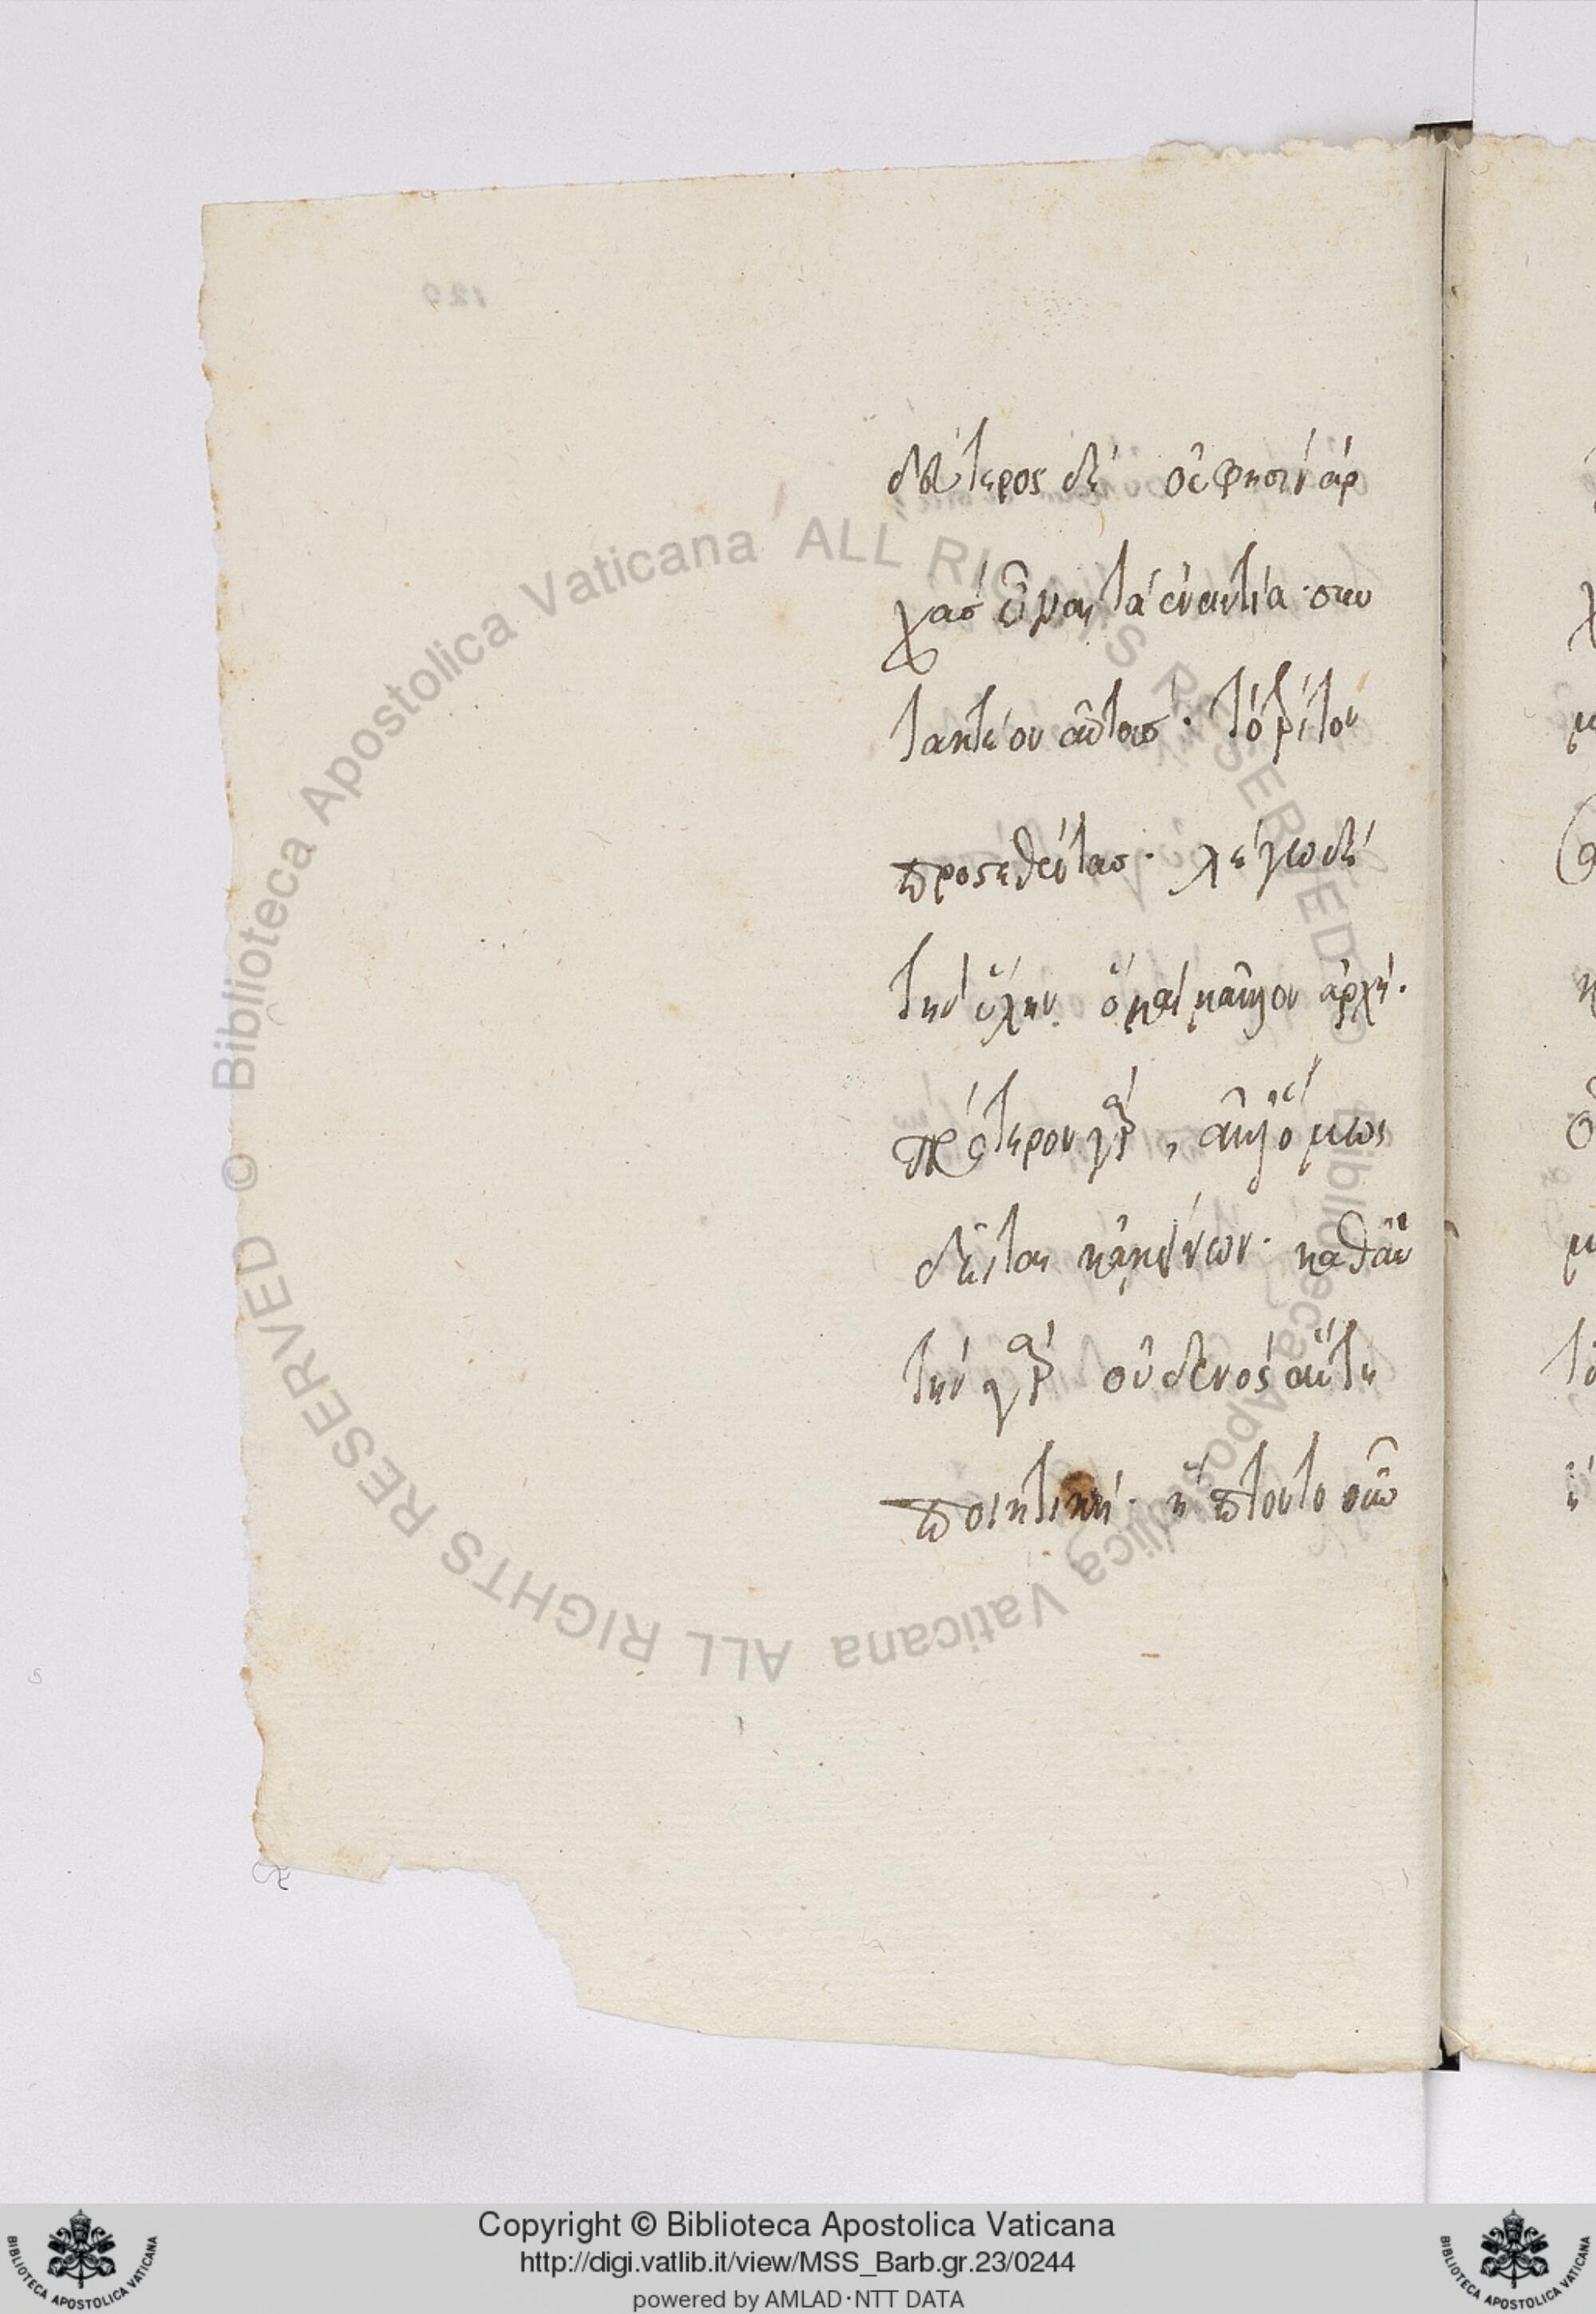 δεύτερος δέ οὗ φησίν ἀρ
χάσ εἶναι τὰ ἐναντία· συν
τακτέον αὐτοῖσ· τὸ τρίτον
προςεθέντασ· λέγω δέ
τὴν ὕλην
πρότερον γὰρ, ὅμως
δεῖται κἀκείνων· καθ' αὑ
τὴν γὰρ οὐδενός αὕτη
ποιητική·
129
© Biblioteca Apostolica Vaticana ALL RIGHTS RESERVED
© Biblioteca Apostolica Vaticana ALL RIGHTS RESERVED
Copyright © Biblioteca Apostolica Vaticana
http://digi.vatlib.it/view/MSS_Barb.gr.23/0244
powered by AMLAD·NTT DATA
BIBLIOTECA APOSTOLICA VATICANA
BIBLIOTECA APOSTOLICA VATICANA